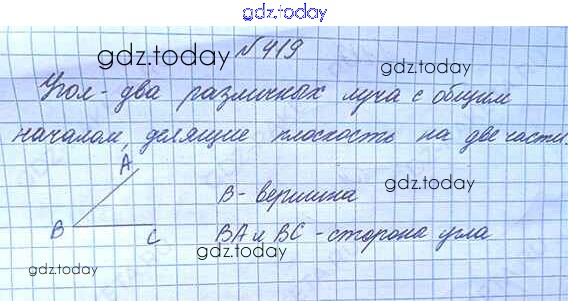 gdz.today
gdz.today №419
gdz.today
Угол - два различных луча с общим
началом, делящие плоскость на две части.
A
gdz.today
B - вершина
B C
BA и BC - сторона угла
gdz.today
gdz.today